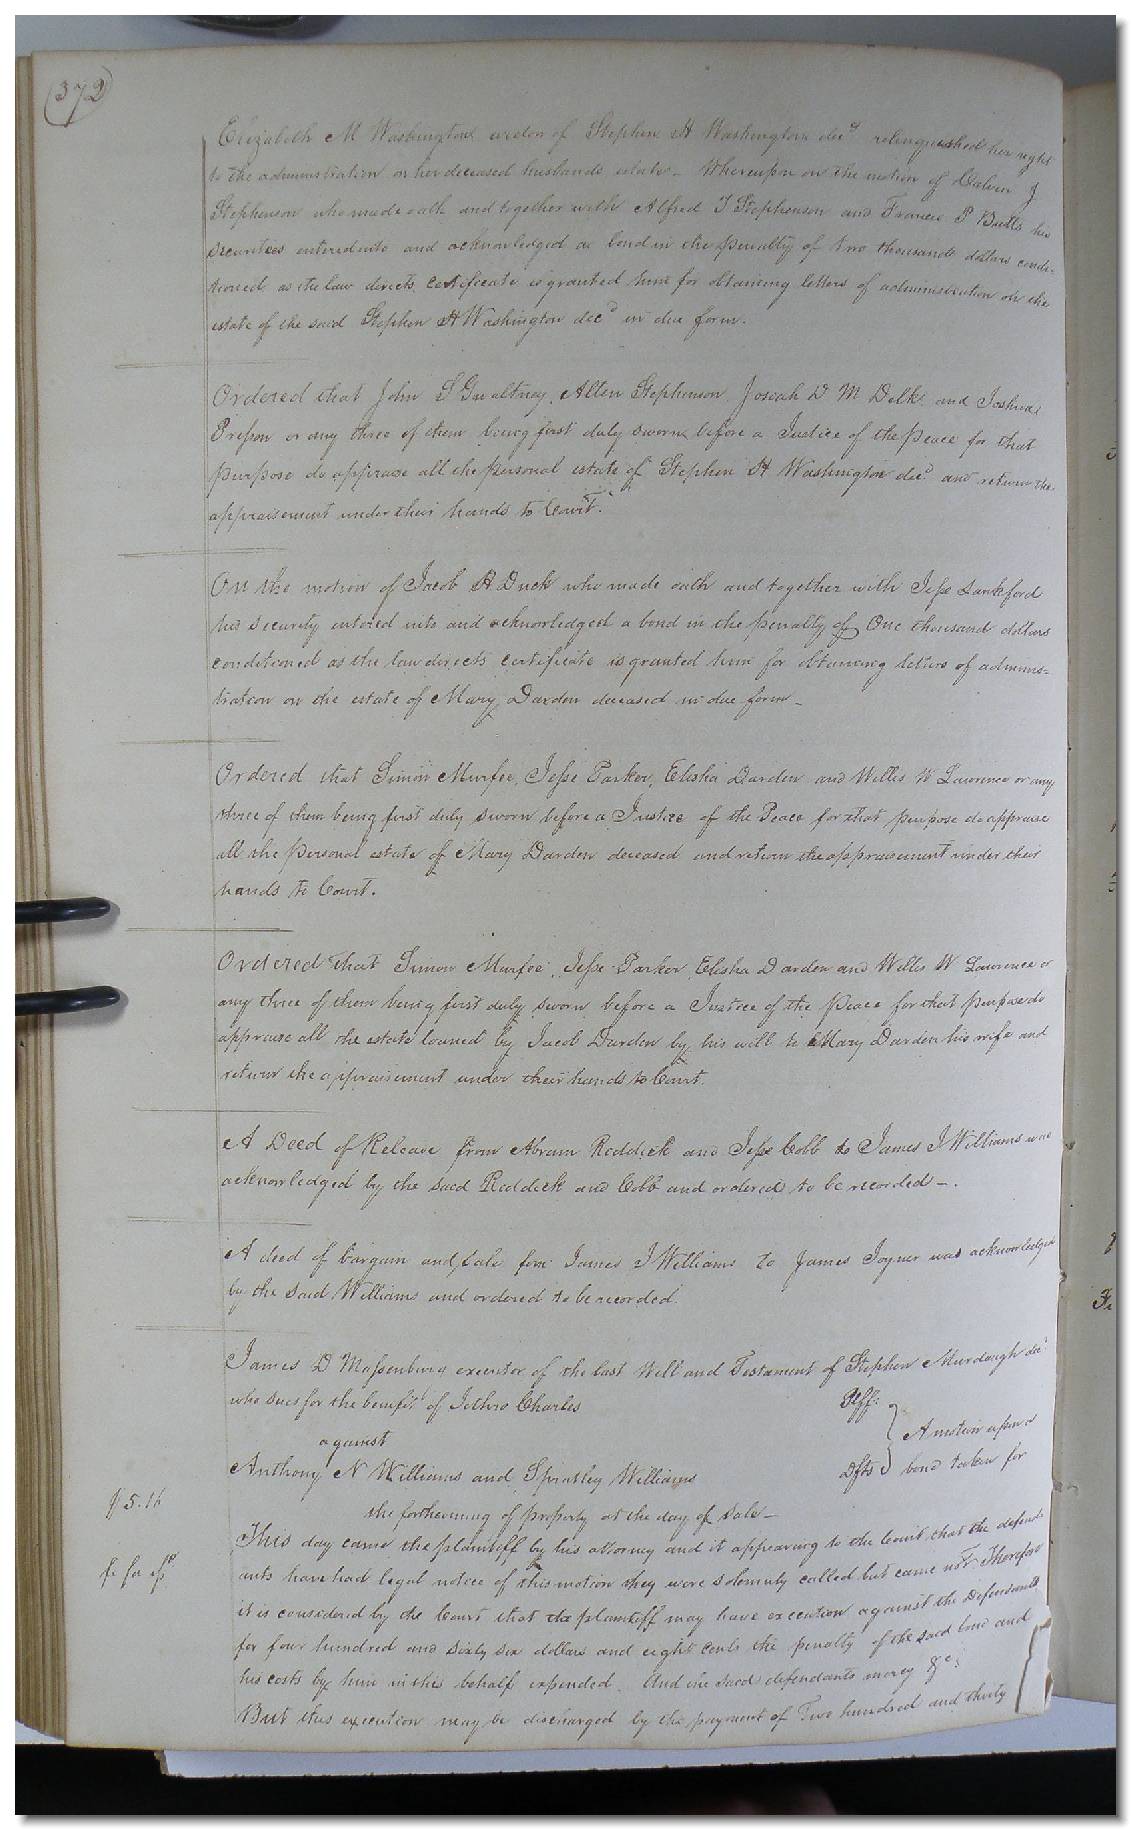 372
Elizabeth M Washington widow of Stephen H Washington decd relinquished her right
to the administration on her deceased husbands estate - Whereupon on the motion of Calvin J
Stephenson who made oath and together with Alfred T Stephenson and Francis P Butts his
securities entered into and acknowledged a bond in the penalty of two thousand dollars condi-
tioned as the law directs certificate is granted him for obtaining letters of administration on the
estate of the said Stephen H Washington decd in due form.
Ordered that John S Gwaltney, Allen Stephenson Josiah D M Delk and Joshua
Presson or any three of them being first duly sworn before a Justice of the peace for that
purpose do appraise all the personal estate of Stephen H Washington decd and return the
appraisement under their hands to Court.
On the motion of Jacob H Duck who made oath and together with Jesse Lankford
his security entered into and acknowledged a bond in the penalty of One thousand dollars
conditioned as the law directs certificate is granted him for obtaining letters of adminis-
tration on the estate of Mary Darden deceased in due form -
Ordered that Simon Murfee, Jesse Parker, Elisha Darden and Willis W Lawrence or any
three of them being first duly sworn before a Justice of the Peace for that purpose do appraise
all the personal estate of Mary Darden deceased and return the appraisement under their
hands to Court.
Ordered that Simon Murfee, Jesse Parker, Elisha Darden and Willis W Lawrence or
any three of them being first duly sworn before a Justice of the Peace for that purpose do
appraise all the estate loaned by Jacob Darden by his will to Mary Darden his wife and
return the appraisement under their hands to Court.
A Deed of Release from Abram Reddick and Jesse Cobb to James J Williams was
acknowledged by the said Reddick and Cobb and ordered to be recorded -.
A deed of bargain and sale from James J Williams to James Joyner was acknowledged
by the said Williams and ordered to be recorded.
James D Massenburg executor of the last Will and Testament of Stephen Murdaugh decd
who sues for the benefit of Jethro Charles Plff:
against
A motion upon a
Anthony N Williams and Spratley Williams Dfts bond taken for
the forthcoming of property at the day of sale -
This day came the plaintiff by his attorney and it appearing to the Court that the defend-
ants have had legal notice of this motion they were solemnly called but came not Therefore
it is considered by the Court that the plaintiff may have execution against the defendants
for four hundred and sixty six dollars and eight cents the penalty of the said bond and
his costs by him in this behalf expended. And the said defendants mercy &c.
But this execution may be discharged by the payment of Two hundred and thirty
5.16